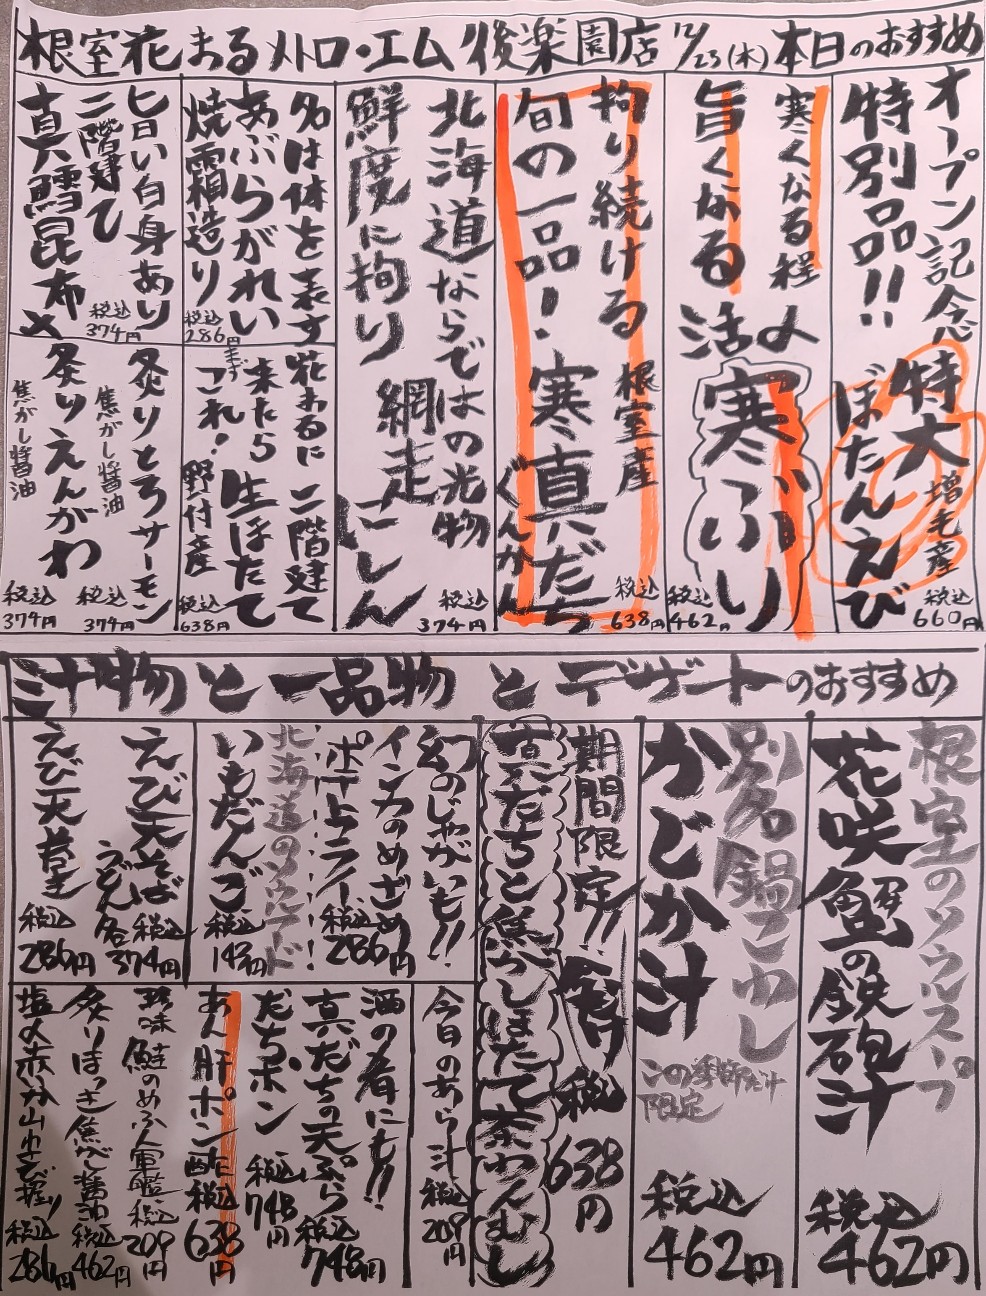 根室花まるメトロ・エム後楽園店 12/25(木)本日のおすすめ
オープン記念
特別品!!
特大
増毛産
ぼたんえび
税込
660円
寒くなる程
旨くなる
活〆
寒ぶり
税込
462円
拘り続ける
旬の一品!
根室産
寒真だち
ぐんかん
税込
638円
北海道ならではの光物
鮮度に拘り
網走
にしん
税込
374円
名は体を表す
あぶらがれい
焼霜造り
税込
286円
花まるに
来たら
まず
これ!
二階建て
生ほたて
野付産
税込
638円
旨い白身あり
二階建て
真鱈昆布〆
税込
374円
炙りとろサーモン
焦がし醤油
税込
374円
炙りえんがわ
焦がし醤油
税込
374円
汁物と一品物とデザートのおすすめ
根室のソウルスープ
花咲蟹の鉄砲汁
税込
462円
別名鍋こわし
かじか汁
この季節だけ
限定
税込
462円
期間限定!!
真だちと焦がしほたて茶わんむし
税込
638円
幻のじゃがいも!!
インカのめざめ
ポテトフライ
税込
286円
北海道のソウルフード
いもだんご
税込
143円
えび天そば
うどん各
税込
374円
えび天巻き
税込
286円
今日のあら汁
税込
209円
酒の肴にも!!
真だちの天ぷら
税込
748円
だちポン
税込
748円
あん肝ポン酢
税込
638円
珍味鮭のめふん軍艦
税込
209円
炙りほっき焦がし醤油
税込
462円
塩〆赤いか山わさび握り
税込
286円